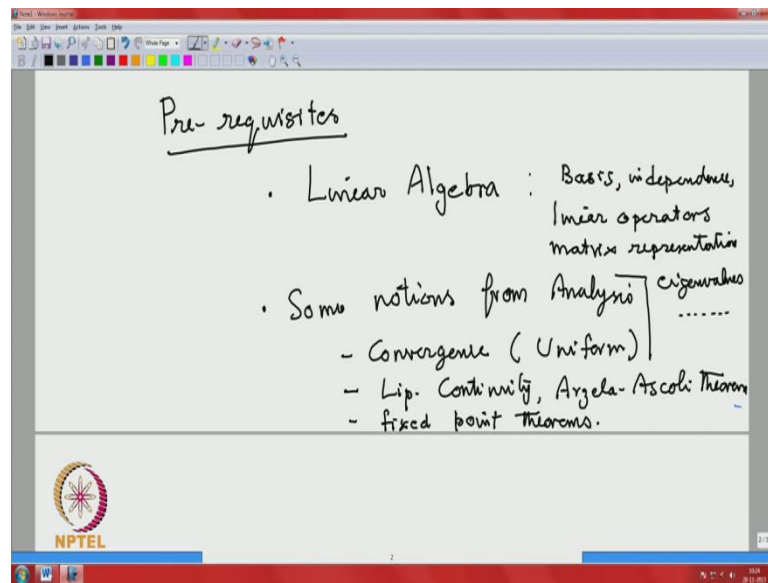 Note1 - Windows Journal
File Edit View Insert Actions Tools Help
Whole Page
B I
Pre-requisites
. Linear Algebra : Basis, independence,
linear operators
matrix representation
eigenvalues
.......
. Some notions from Analysis
- Convergence (Uniform)
- Lip. Continuity, Arzela-Ascoli Theorem
- fixed point Theorems.
NPTEL
2
2/3
10:24